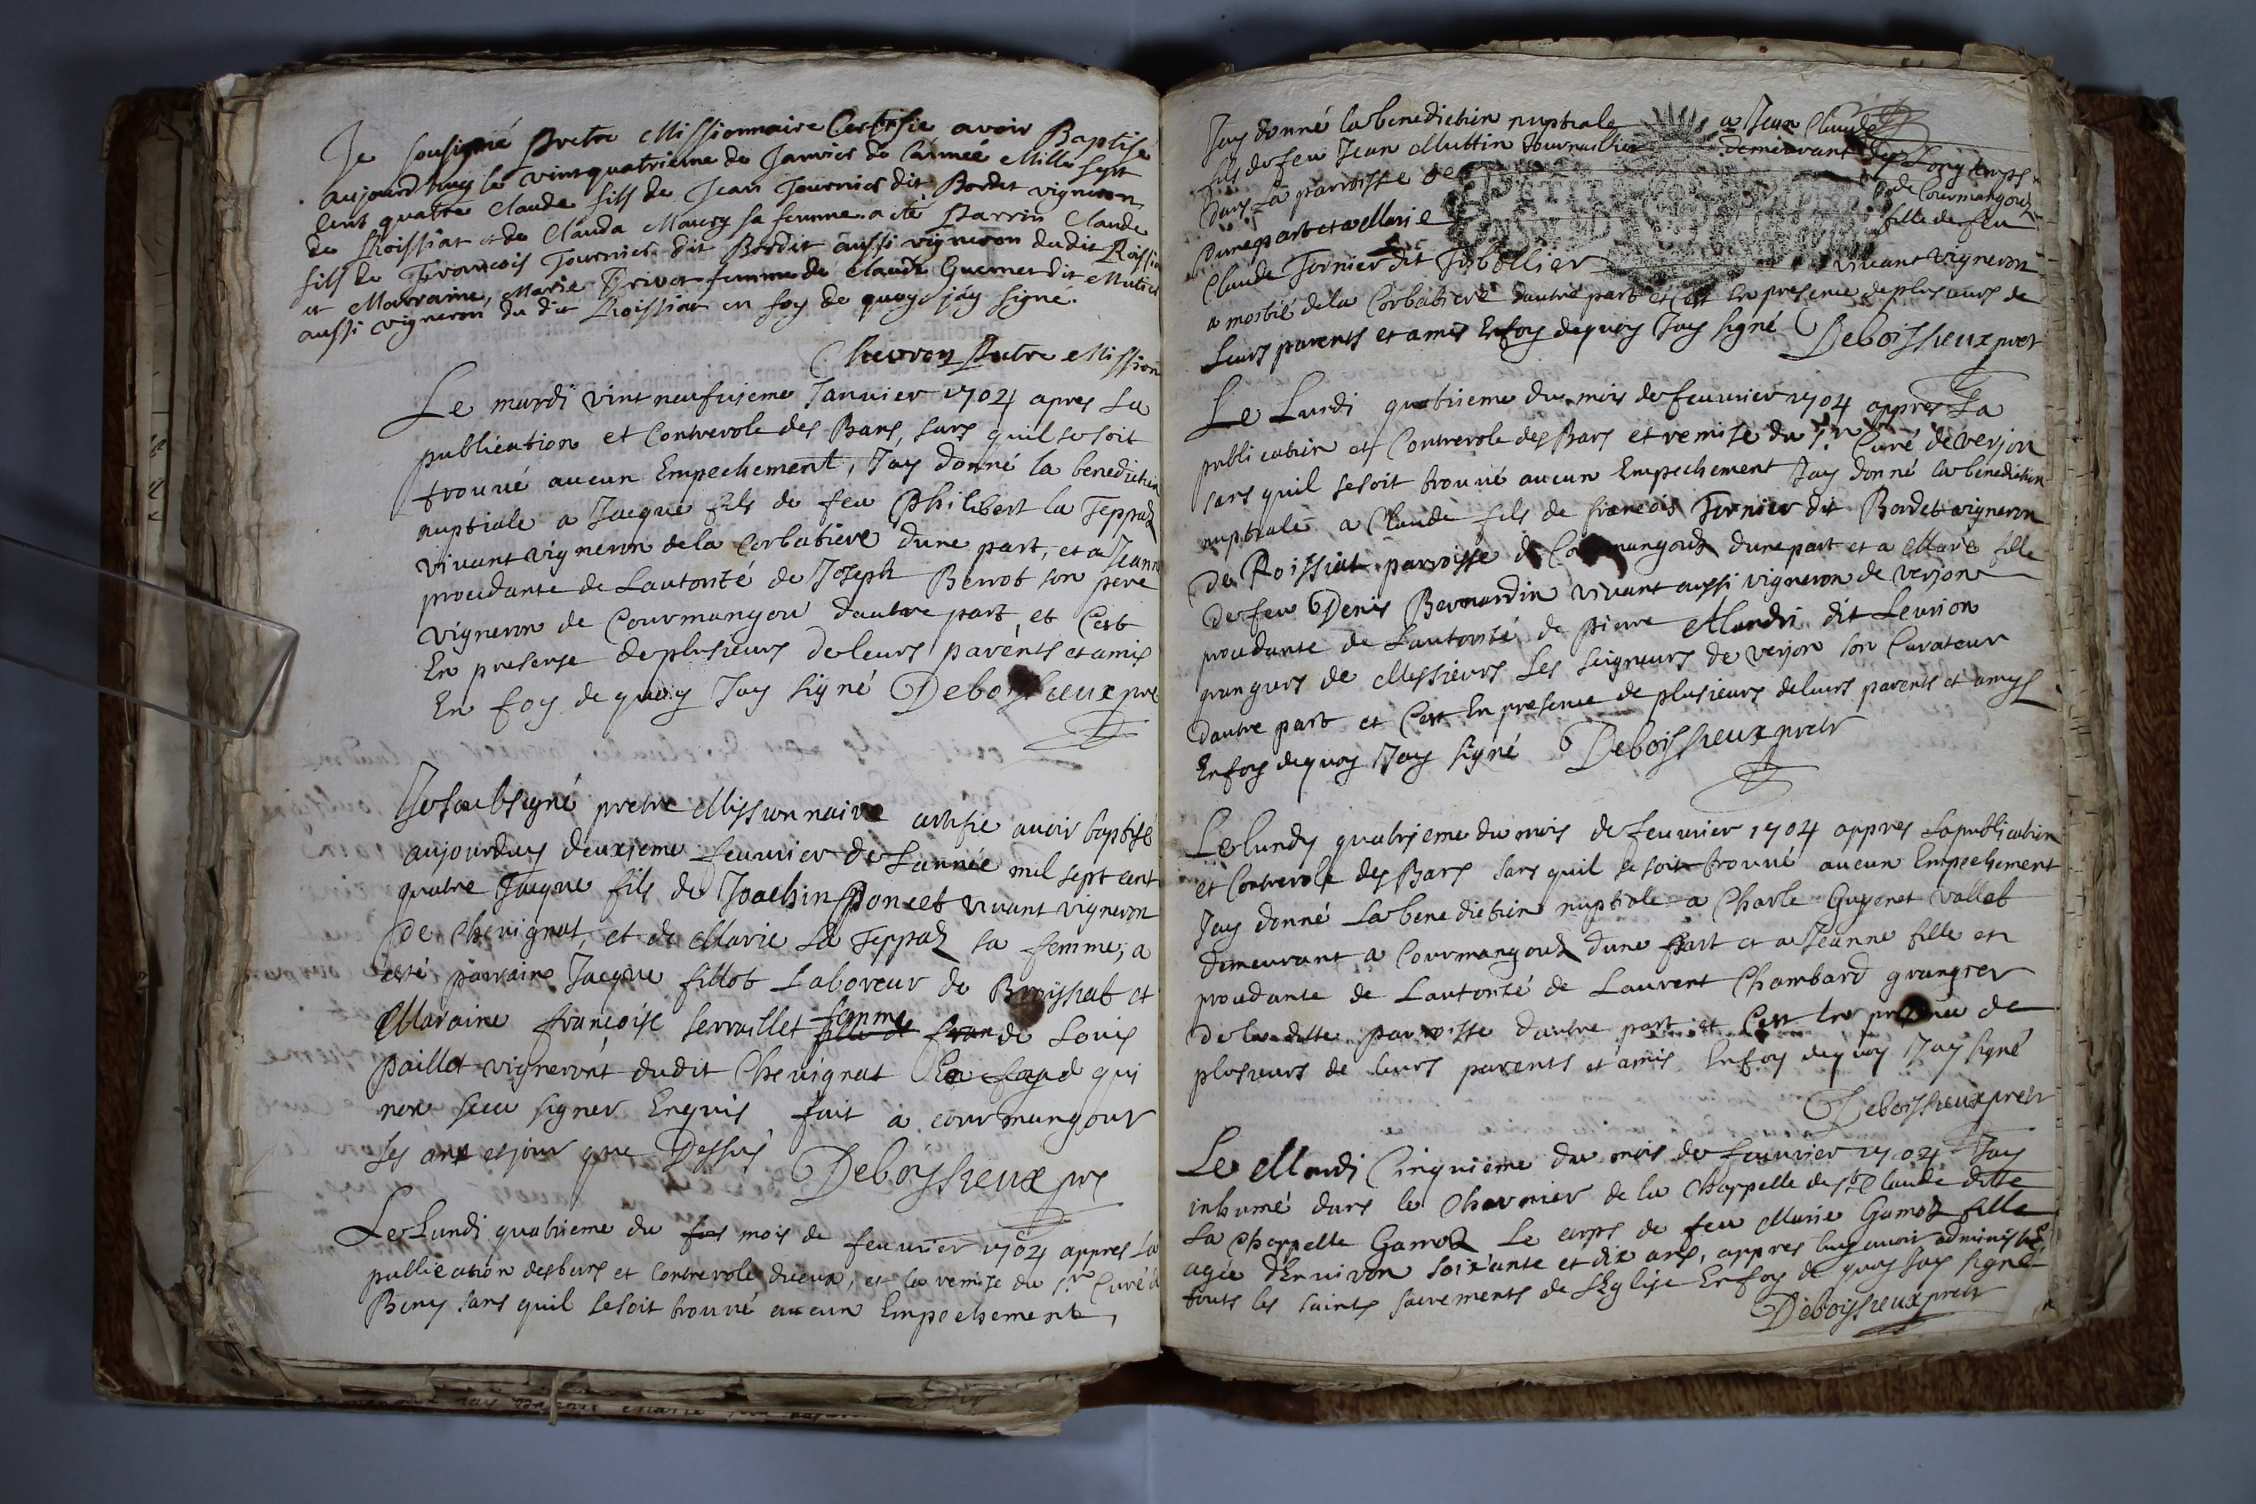 Je sousigné Pretre Missionnaire Certifie avoir Baptisé
aujourdhuy le vintquatrieme de Janvier de lannée Mille sept
cent quatre Claude fils de Jean Tournier dit Bordet vigneron
de Roissiat et de Clauda Maury sa femme a été Parrin Claude
fils de Francois Tournier dit Bordet aussi vigneron dudit Roissia
et Marraine, Marie Privet femme de Claude Guernet dit
aussi vigneron du dit Roissiat en foy de quoy j'ay signé.
Chevron Pretre Mission
Le mardi vintneufvieme Januier 1704 apres La
publication et Controrole des Bans, sans quil se soit
trouué aucun Empechement, Jay donné la benediction
nuptiale a Jacque fils de feu Philibert la Teppaz
vivant vigneron dela Corbatiere d'une part, et a Jeanne
procedante de Lautorité de Joseph Berrot son pere
vigneron de Courmangou dautre part, et Cest
En presense deplusieurs deleurs parents et amis
En foy de quoy Jay signé Deboissieux pre
Je soubsigné pretre Missionnaire certifie avoir baptisé
aujourduy deuxieme feuurier de Lannée mil sept cent
quatre Jacque fils de Joachin Poncet vivant vigneron
de Chevignat, et de Marie La Teppaz sa femme, a
esté parrain Jacque fillot Laboreur de Broissiat et
Maraine françoise Serraillet femme
fille de fran de Louis
paillot vigneront dudit Chevignat En foy d qui
non sceu signer Enquis fait a courmangour
les an et jour que Dessus Deboissieux pre
Le Lundi quatrieme du mois de feuurier 1704 appres La
publication desbans et Controrole diceux, et la remise du Sr. Curé d
Beny sans quil sesoit trouué aucun Empechement,
Jay donné la benediction nuptiale a Jean Claude
fils de feu Jean Muttin Tournaillier demeurant des Longtemps
dans la parroisse de Courmangoux
dune part et a Marie fille de feu
Claude Tornier dit Jubollier vivant vigneron
a moitié dela Corbatiere dautre part et Cest En presence deplusieurs de
Leurs parents et amis Enfoy dequoy Jay signé Deboissieux pretr
Le Lundi quatrieme du mois de feuurier 1704 appres La
publication et Controrole des Bans et remise du Sr. Curé de verjon
sans quil sesoit trouué aucun Empechement Jay donné la benediction
nuptiale a Claude fils de francois Tornier dit Bordet vigneron
de Roissiat parroisse de Courmangoux dune part et a Marie fille
de feu Denis Bernardin vivant aussi vigneron de verjon
procedante de Lautorité de pierre Mandri dit Leurion
grangers de Messieurs Les seigneurs de verjon son Curateur
dautre part et Cest En presence de plusieurs deleurs parents et amys
Enfoy dequoy Jay signé Deboissieux pretr
Le lundy quatrieme du mois de feuurier 1704 appres Lapublication
et Controrole des Bans sans quil se soit trouué aucun Empechement
Jay donné Labenediction nuptiale a Charle Guyonet vallet
demeurant a Courmangoux dune part et a Jeanne fille et
procedante de Lautorité de Laurent Chambard granger
de la ditte parroisse dautre part et Cest En presence de
plusieurs de leurs parents et amis Enfoy dequoy Jay signé
Deboissieux pretr
Le Mardi Cinquieme du mois de feuurier 1704 Jay
inhumé dans le Charnier de la Chappelle de St Claude ditte
La Chappelle Gamoz Le corps de feu Marie Gamoz fille
agée d'Environ soixante et dix ans, appres luy avoir administré
touts les saints sacrements de LEglise Enfoy de quoy Jay signé
Deboissieux pretr